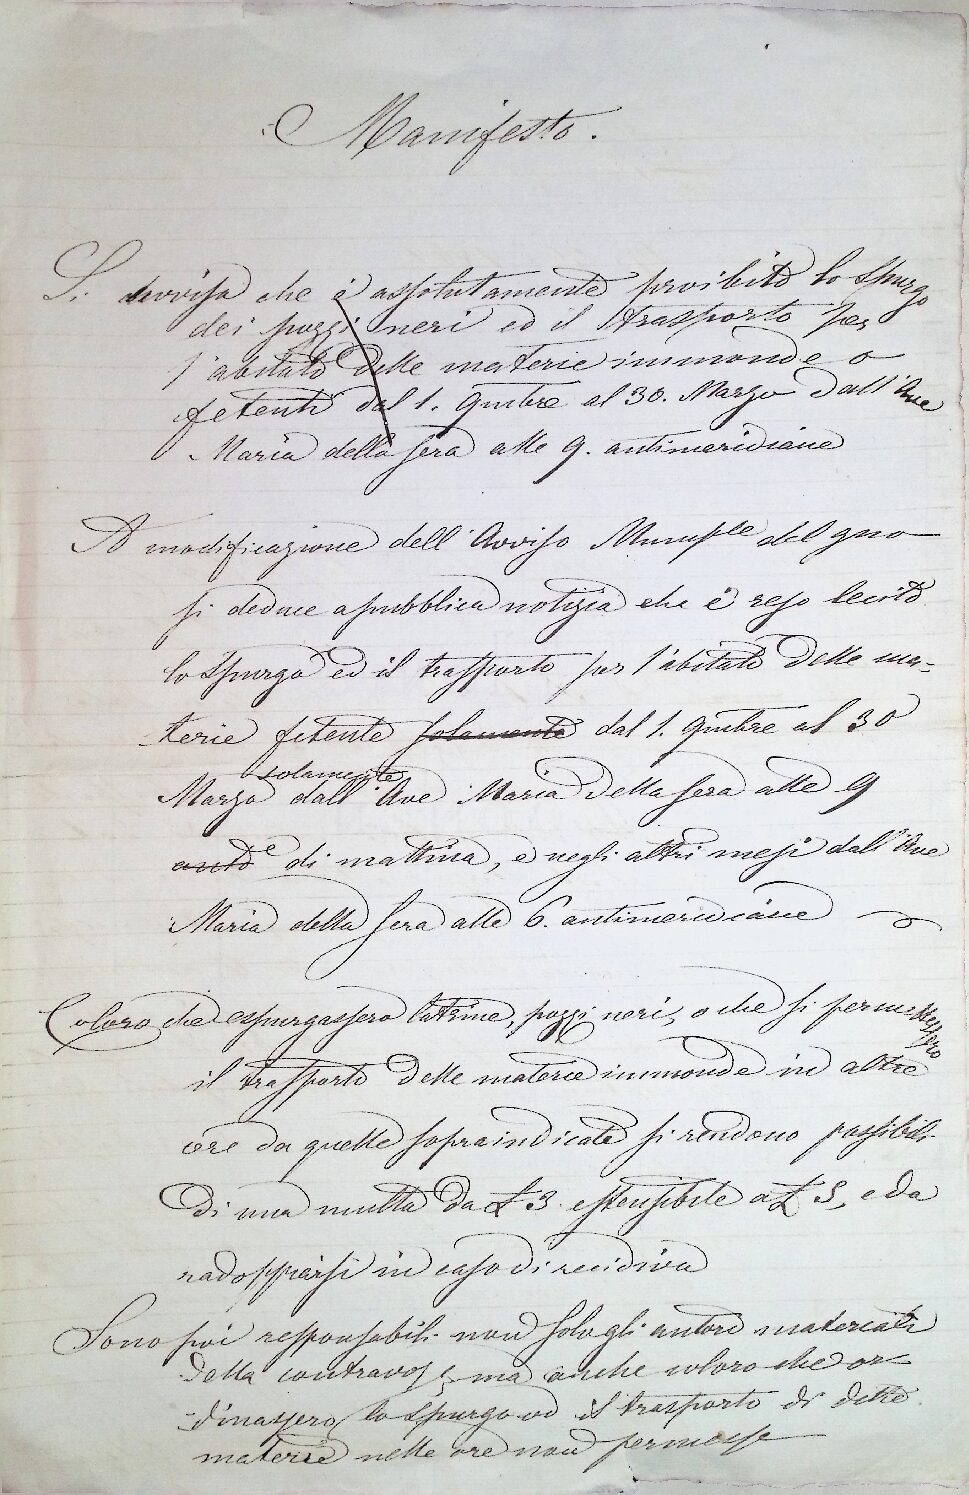 Manifesto.
Si avvisa che è assolutamente proibito lo spurgo
dei pozzi neri ed il trasporto per
l'abitato delle materie immonde o
fetenti dal 1. 9mbre al 30. Marzo dall'Ave
Maria della sera alle 9. antimeridiane
A modificazione dell'Avviso Municiple del
si deduce a pubblica notizia che è reso lecito
lo spurgo ed il trasporto per l'abitato delle ma-
terie fetente solamente dal 1. 9mbre al 30
solamente
Marzo dall'Ave Maria della sera alle 9
di mattina, e negli altri mesi dall'Ave
Maria della sera alle 6. antimeridiane
Coloro che espurgassero latrine, pozzi neri, o che si permettessero
il trasporto delle materie immonde in altre
ore da quelle sopraindicate si rendono passibili
di una multa da £ 3 estensibile a £ 5, e da
radoppiarsi in caso di recidiva
Sono poi responsabili non solo gli autori materiali
della contravoze, ma anche coloro che or
dinassero lo spurgo od il trasporto di dette
materie nelle ore non permesse